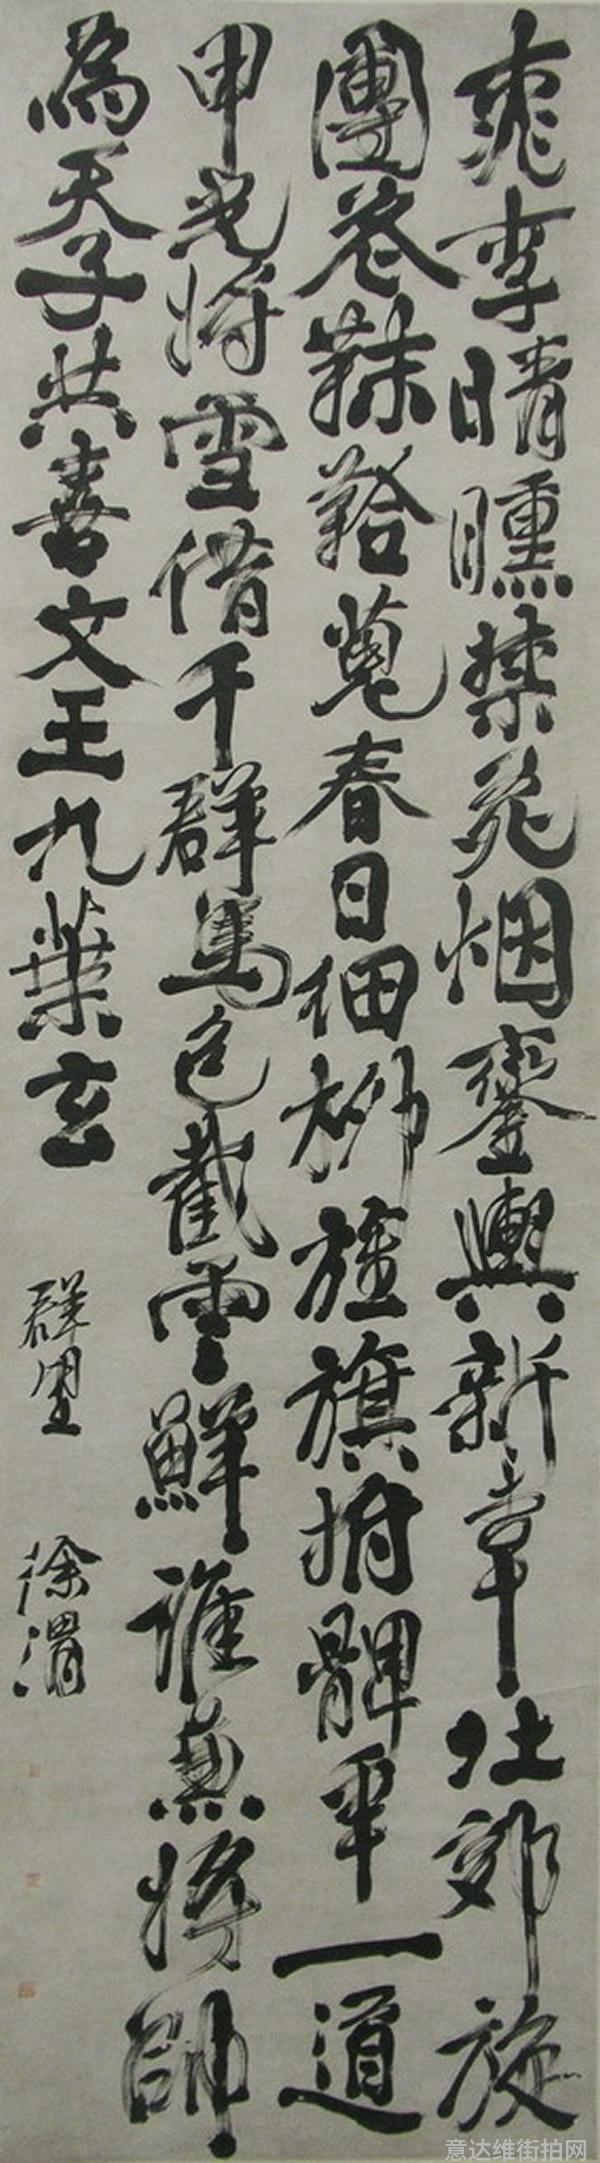 桃李晴曛禁苑烟鑾輿新幸北郊旋
團花靺鞈蒐春日細柳旌旗拊髀年一道
甲光將雪借千群馬色截雲鮮誰兼將帥
為天子共喜文王九葉玄
徐渭
意达维街拍网